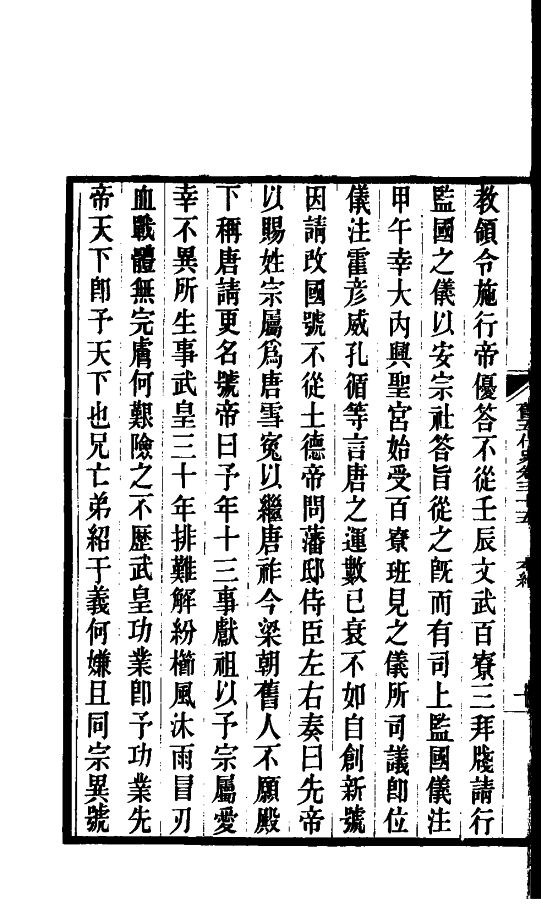 舊五代史卷三十五　本紀　十
教領令施行帝優答不從壬辰文武百寮三拜牋請行
監國之儀以安宗社答旨從之旣而有司上監國儀注
甲午幸大內興聖宮始受百寮班見之儀所司議卽位
儀注霍彥威孔循等言唐之運數已衰不如自創新號
因請改國號不從土德帝問藩邸侍臣左右奏曰先帝
以賜姓宗屬爲唐雪寃以繼唐祚今梁朝舊人不願殿
下稱唐請更名號帝曰予年十三事獻祖以予宗屬愛
幸不異所生事武皇三十年排難解紛櫛風沐雨冒刃
血戰體無完膚何艱險之不歷武皇功業卽予功業先
帝天下卽予天下也兄亡弟紹于義何嫌且同宗異號